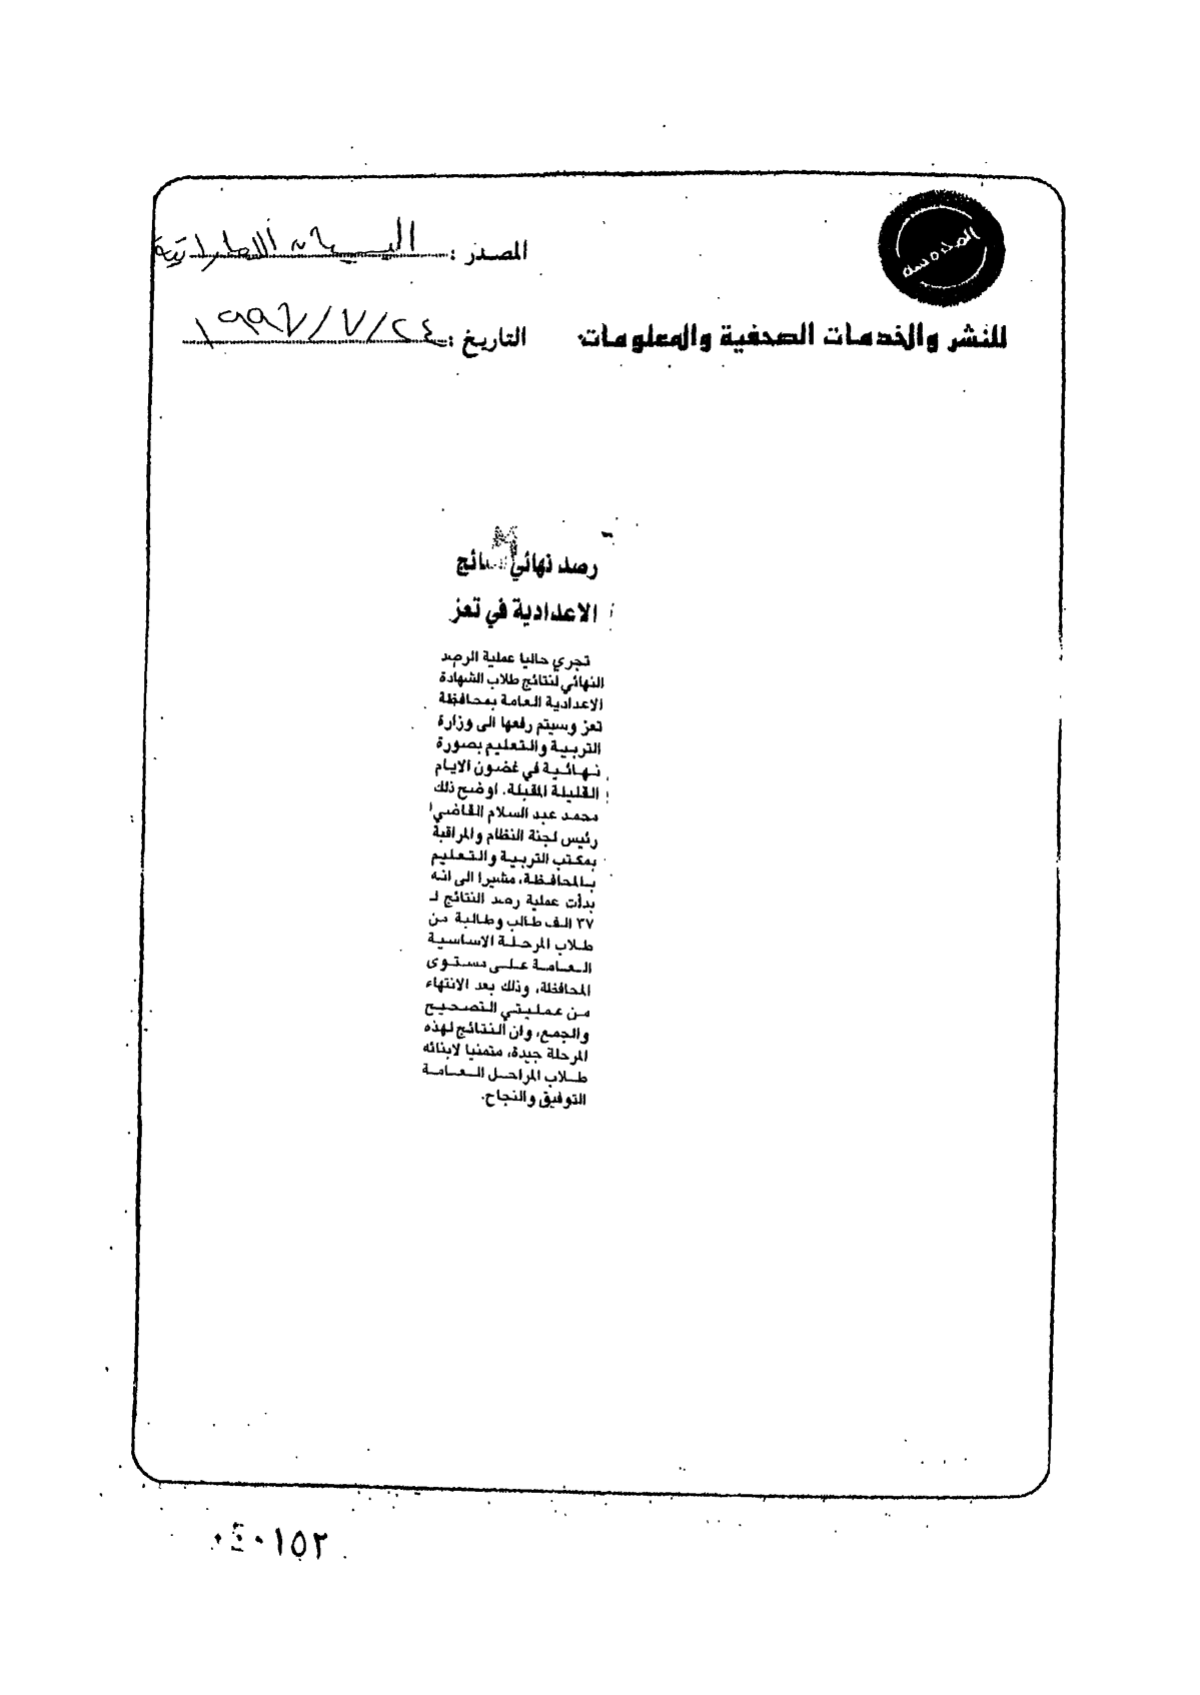 المصدر : البيان الاماراتية
للنشر والخدمات الصحفية والمعلومات
التاريخ : ٢٤/٧/١٩٩٧
رصد نهائي لنتائج
الاعدادية في تعز
تجري حاليا عملية الرصد
النهائي لنتائج طلاب الشهادة
الاعدادية العامة بمحافظة
تعز وسيتم رفعها الى وزارة
التربية والتعليم بصورة
نهائية في غضون الايام
القليلة المقبلة. اوضح ذلك
محمد عبد السلام القاضي
رئيس لجنة النظام والمراقبة
بمكتب التربية والتعليم
بالمحافظة، مشيرا الى انه
بدأت عملية رصد النتائج لـ
٣٧ الف طالب وطالبة من
طلاب المرحلة الاساسية
العامة على مستوى
المحافظة، وذلك بعد الانتهاء
من عمليتي التصحيح
والجمع، وان النتائج لهذه
المرحلة جيدة، متمنيا لابنائه
طلاب المراحل العامة
التوفيق والنجاح.